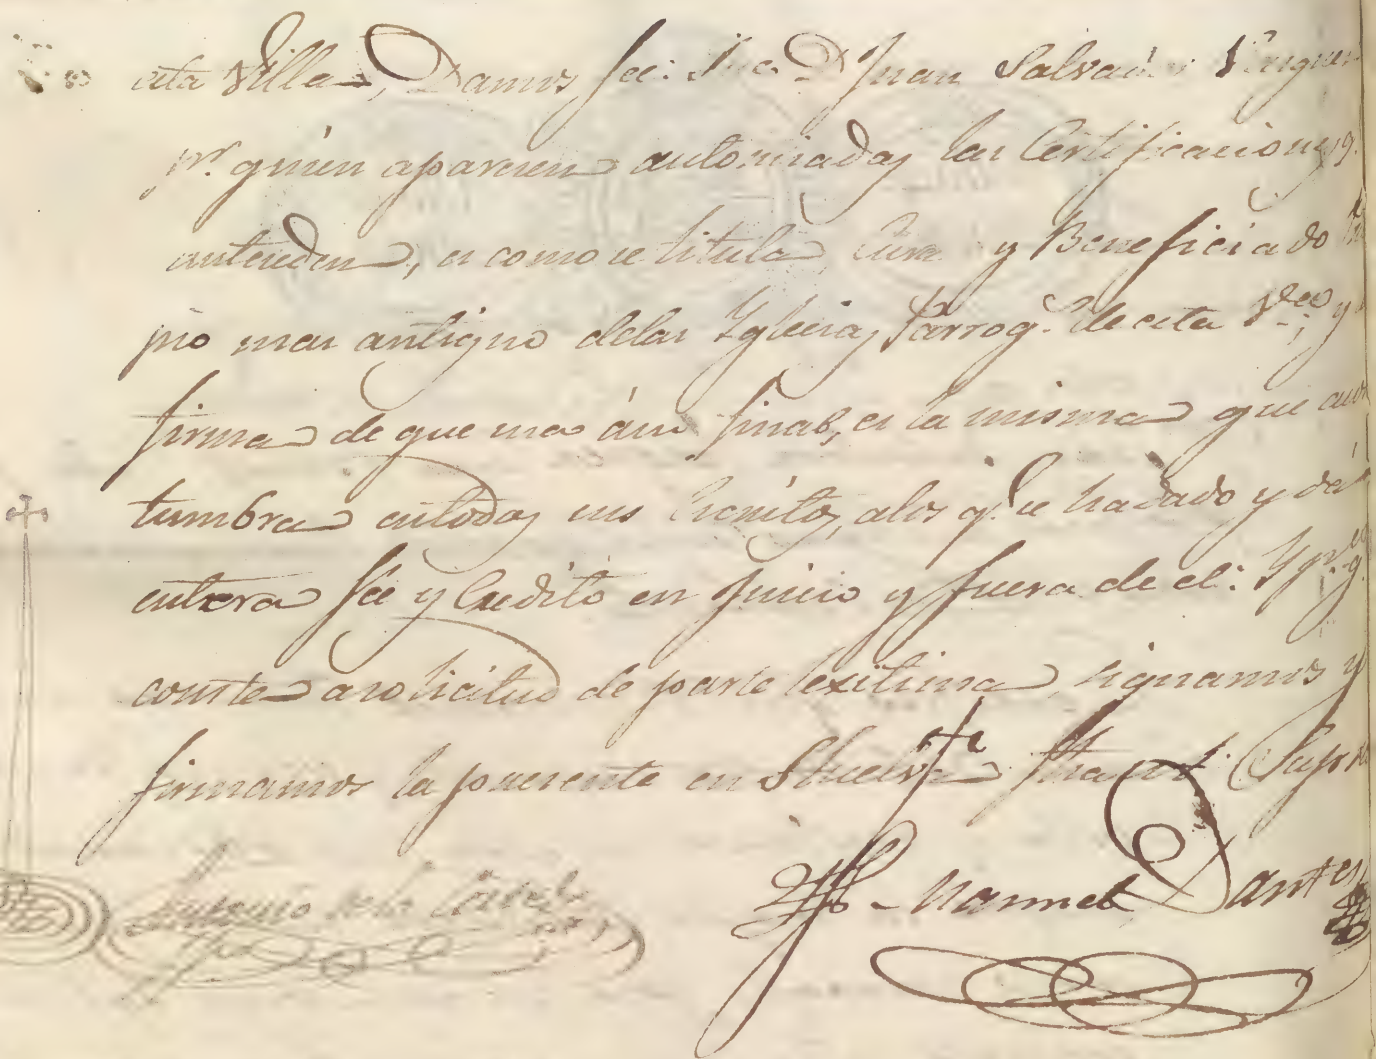 esta Villa, Damos fee: Que D.n Juan Salvador
pr. quien aparecen autorizadas las Certificaciones q.
anteceden, es como se titula Cura y Beneficiado
pio mas antiguo delas Yglesias Parroq.s de esta V.a; y
firma de que usa ásu final, es la misma que acos
tumbra entodos sus Escritos, alos q.e se hadado y dá
entera fée y Credito en Juicio y fuera de el: Y pa. q.
conste asolicitud de parte lexitima, signamos y
firmamos la presente en Huelva
Antonio de la Corte
Manuel Dantes